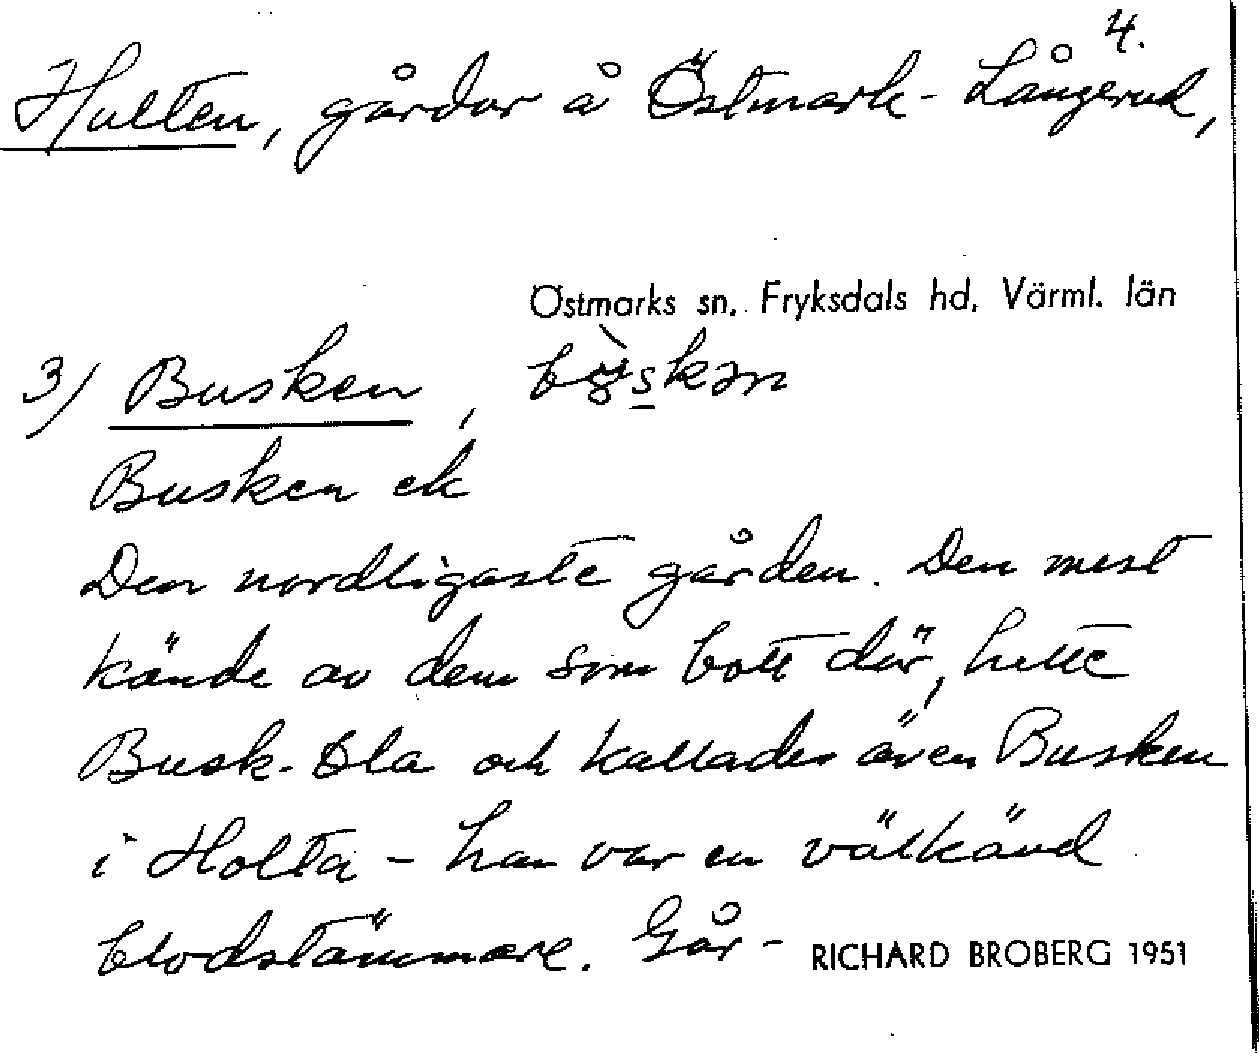 4.
Hulten, gårdar å Östmark - Långerud,
Östmarks sn. Fryksdals hd, Värml. län
3) Busken,
Busken ek
Den nordligaste gården. Den mest
kände av dem som bott där, hette
Busk-Ola och kallades även Busken
i Holta - han var en välkänd
blodstämmare. Går-
RICHARD BROBERG 1951